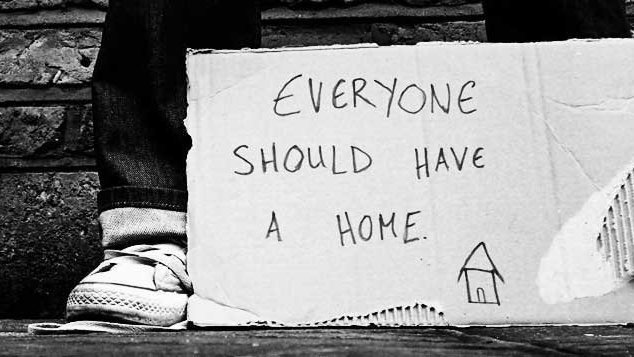 EVERYONE
SHOULD HAVE
A HOME.